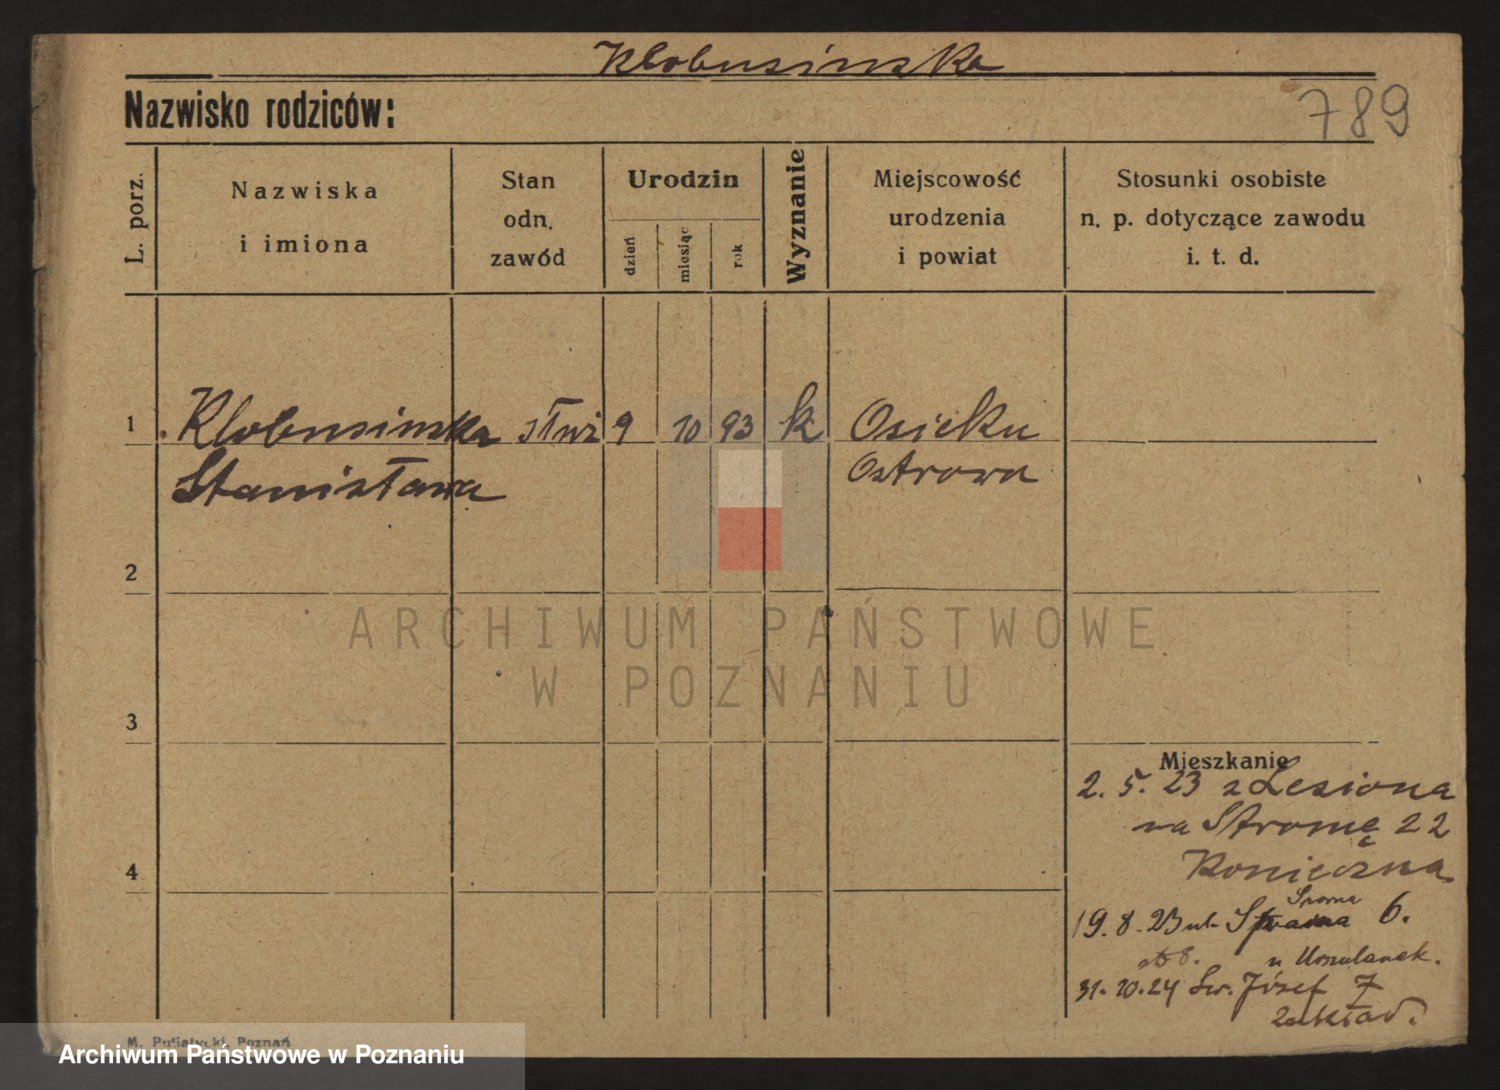 Kłobusińska
Nazwisko rodziców:
789
L. porz.
Nazwiska
i imiona
Stan
odn.
zawód
Urodzin
dzień
miesiąc
rok
Wyznanie
Miejscowość
urodzenia
i powiat
Stosunki osobiste
n. p. dotyczące zawodu
i. t. d.
1 Klobusinska służ 9 10 93 k Osieku
Stanisława Ostrowa
2
3
4
Mieszkanie
2. 5. 23 z Lesiona
na Stromę 22
Konieczna
Sporna
19. 8. 23 ul. 6.
u Urszulanek.
31. 10. 24 Św. Józef 7
zakład.
ARCHIWUM PAŃSTWOWE
W POZNANIU
M. Putiatycki, Poznań
Archiwum Państwowe w Poznaniu